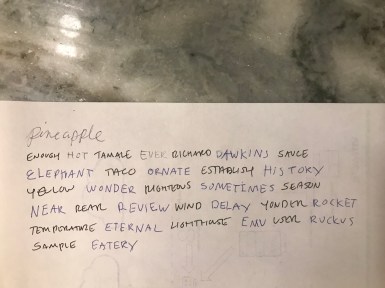 pineapple
ENOUGH HOT TAMALE EVER RICHARD DAWKINS SAUCE
ELEPHANT TACO ORNATE ESTABLISH HISTORY
YELLOW WONDER RIGHTEOUS SOMETIMES SEASON
NEAR REAR REVIEW WIND DELAY YONDER ROCKET
TEMPERATURE ETERNAL LIGHTHOUSE EMU USER RUCKUS
SAMPLE EATERY